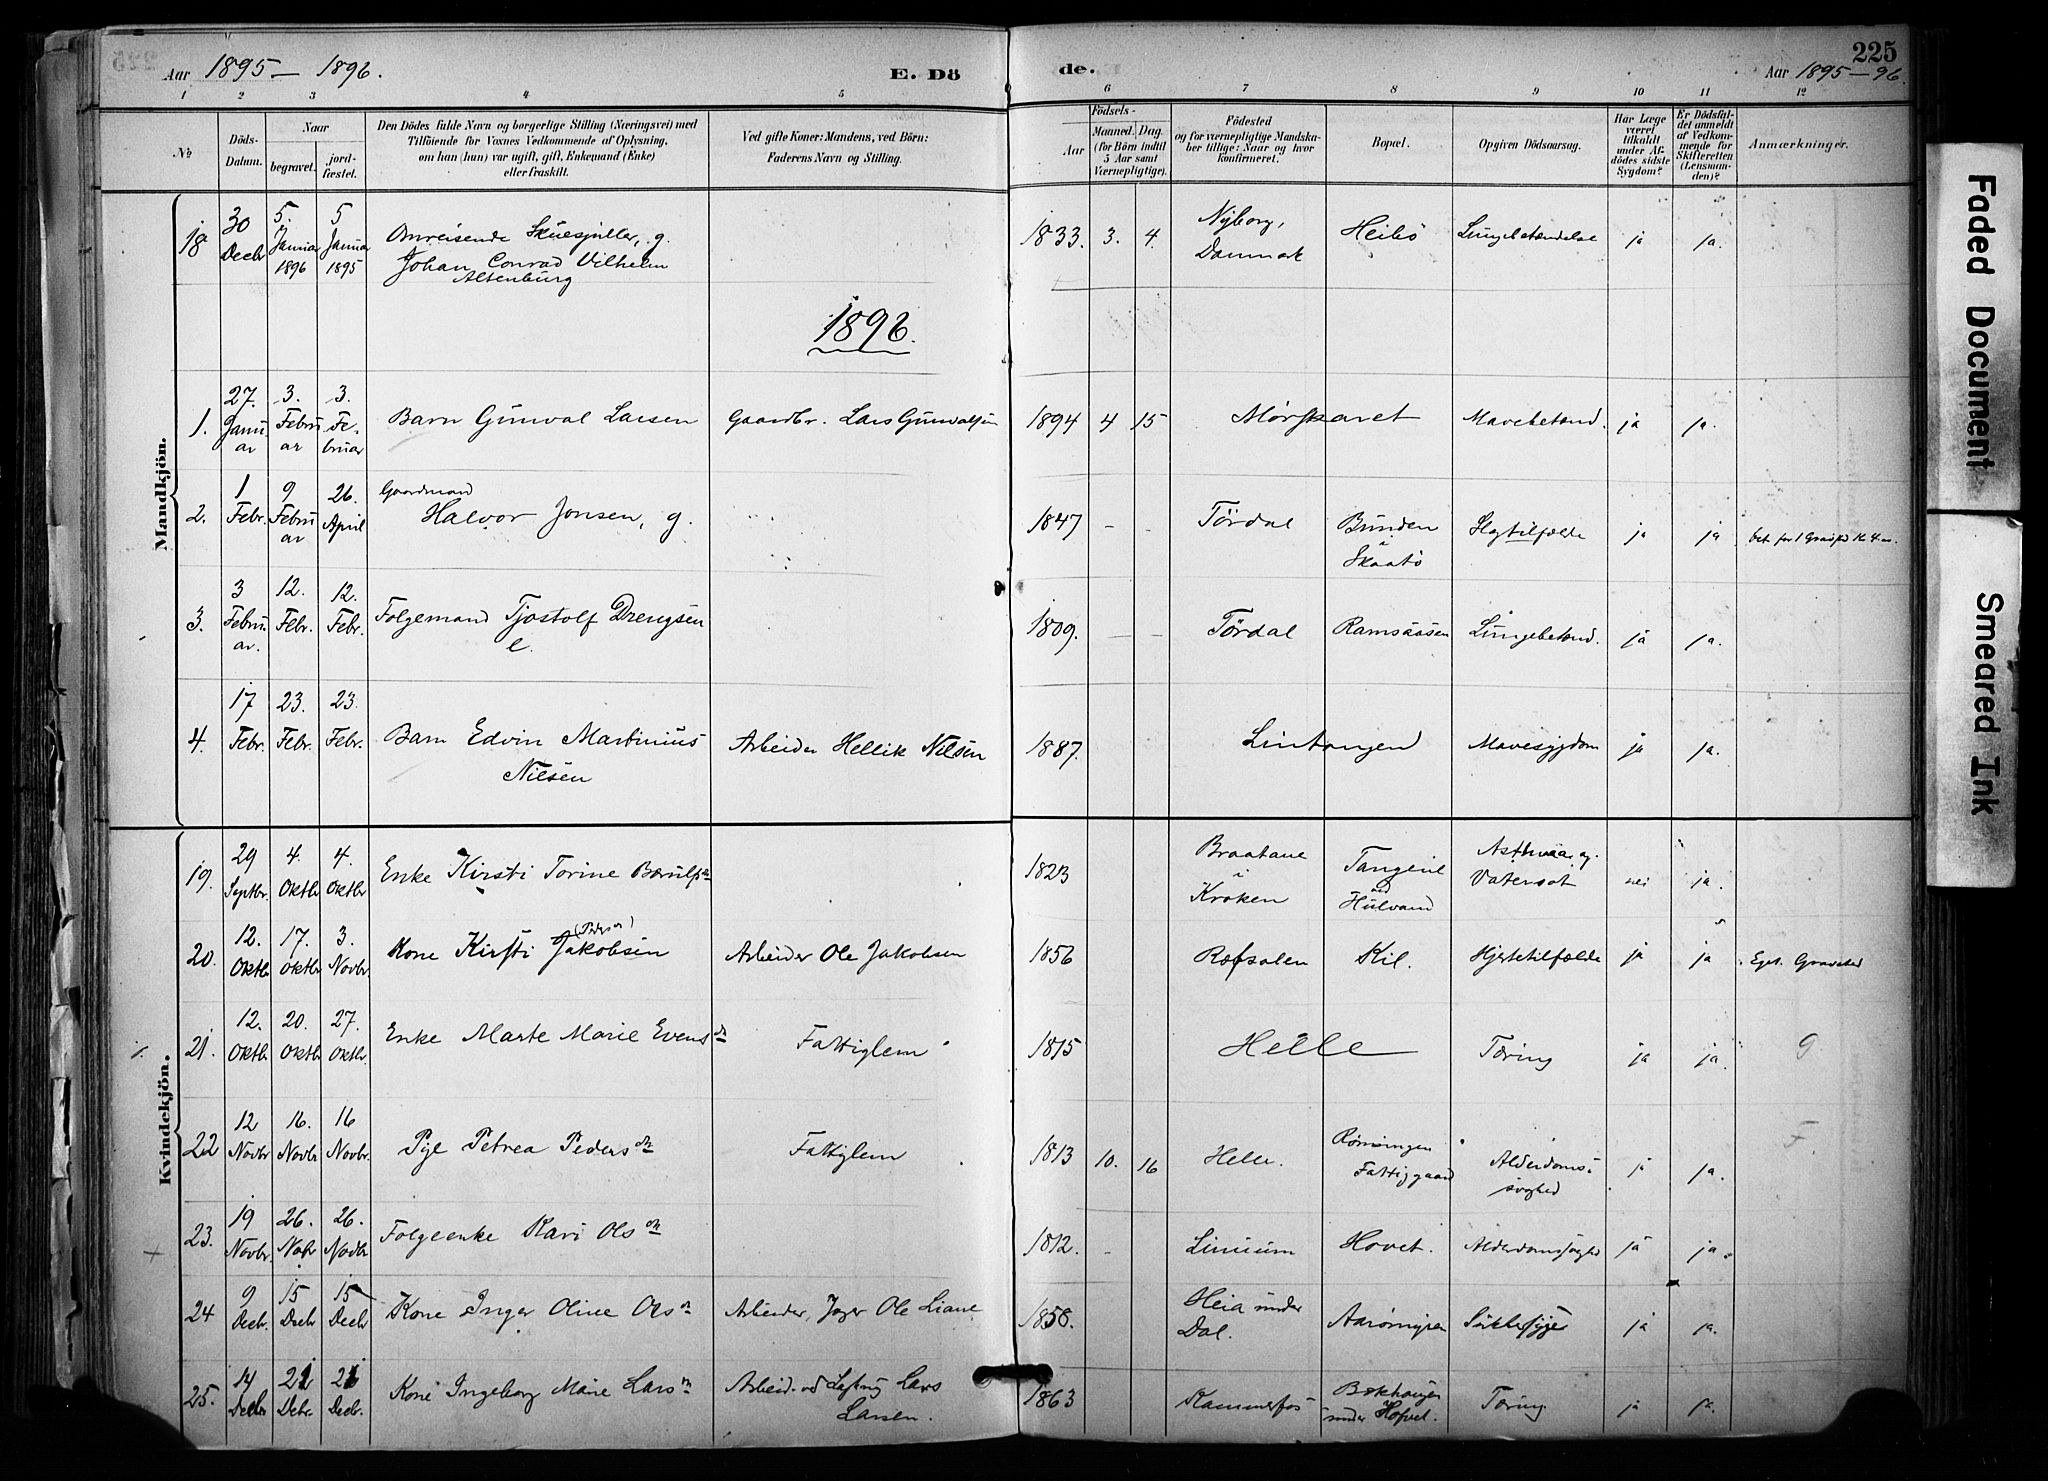 225
Aar 1895 — 1896.
E. Dö
de.
Aar 1895 — 96.
1 2 3 4 5 6 7 8 9 10 11 12
No
Döds-Datum.
Naar
begravet.
jord-fæstet.
Den Dödes fulde Navn og borgerlige Stilling (Næringsvei) med
Tilföiende for Voxnes Vedkommende af Oplysning,
om han (hun) var ugift, gift, Enkemand (Enke)
eller fraskilt.
Ved gifte Koner: Mandens, ved Börn:
Faderens Navn og Stilling.
Födsels-
Aar
Maaned. Dag.
(for Börn indtil
5 Aar samt
Værnepligtige).
Födested
og for værnepligtige Mandska-
ber tillige: Naar og hvor
konfirmeret.
Bopæl.
Opgiven Dödsaarsag.
Har Læge
været
tilkaldt
under Af-
dödes sidste
Sygdom?
Er Dödsfal-
det anmeldt
af Vedkom-
mende for
Skifteretten
(Lensman-
den)?
Anmærkninger.
Mandkjön.
18 30 Decbr 5. Januar 1896 5 Januar 1895 Omreisende Skuespiller, g.
Johan Conrad Vilhelm
Altenburg
1833. 3. 4. Nyborg, Danmark Heibö Lungebetændelse ja ja.
1896.
1. 27. Januar 3. Februar 3. Februar Barn Gunval Larsen Gaardbr. Lars Gunvalsen 1894 4 15 Mørkavet Mavebetænd. ja ja.
2. 1 Febr. 9 Februar 26. April Gaardmand
Halvor Jonsen, g. 1847 - - Tördal Bunden i Skaatö Slagtilfælde ja ja bet. for 1 Gravsted Kr 4
3. 3 Februar. 12. Febr. 12. Febr. Folgemand Tjostolf Drengsen
e. 1809. - - Tördal Ramsaasen Lungebetænd. ja ja.
4. 17 Febr. 23. Febr. 23. Febr. Barn Edvin Martinius
Nilsen Arbeider Hellik Nilsen 1887. Lintangen Mavesygdom ja ja.
Kvindekjön.
19. 29 Septbr. 4. Oktbr 4. Oktbr Enke Kirsti Torine 1823 Braatane i Kroken Tangene ved Hulvand Asthma og Vatersot nei ja.
20. 12. Oktbr 17. Oktbr 3. Novbr Kone Kirsti Jakobsen Arbeider Ole Jakobsen 1856 Ræfsalen Kil. Hjertetilfælde ja ja Eget Gravsted
21. 12. Oktbr 20. Oktbr 27. Oktbr Enke Marte Marie Evensdn Fattiglem 1815 Helle Tæring ja ja. G
22 12 Novbr 16. Novbr 16 Novbr. Pige Petrea Pedersdn Fattiglem 1813 10. 16 Helle. Rømingen Fattiggaard Alderdomssvaghed ja ja. F.
23. 19 Novbr. 26. Novbr 26. Novbr Folgeenke Kari Olsdn 1812. - Linum Hovet. Alderdomssvaghed ja ja.
24 9 Decbr. 15 Decbr 15 Decbr Kone Inger Oline Olsdn Arbeider, Jæger Ole Liane 1858. Heia under Dal. Aarömyren Sukkersyge ja ja.
25. 14 Decbr 21 Decbr. 21 Decbr. Kone Ingeborg Marie Larsdn Arbeid. Lars
Larsen. 1863 Kammerfos under Hofvet. Tæring ja ja.
Faded Document
Smeared Ink